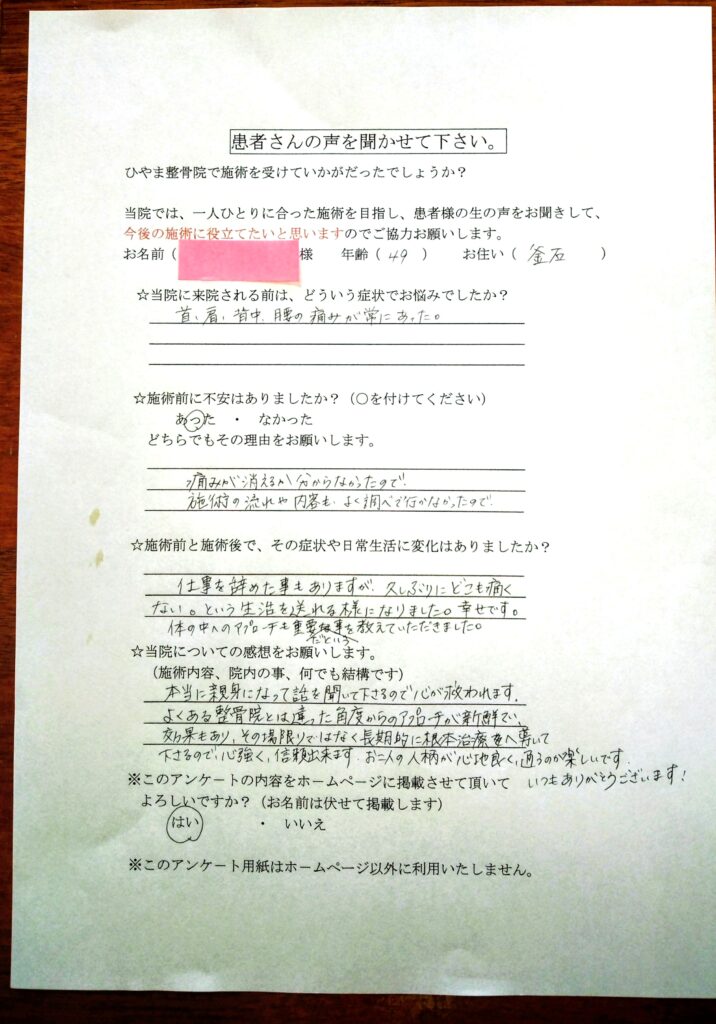 患者さんの声を聞かせて下さい。
ひやま整骨院で施術を受けていかがだったでしょうか？
当院では、一人ひとりに合った施術を目指し、患者様の生の声をお聞きして、
今後の施術に役立てたいと思いますのでご協力お願いします。
お名前（ 様 年齢（ 49 ） お住い（ 釜石 ）
☆当院に来院される前は、どういう症状でお悩みでしたか？
首、肩、背中、腰の痛みが常にあった。
☆施術前に不安はありましたか？（○を付けてください）
あった ・ なかった
どちらでもその理由をお願いします。
痛みが消えるか分からなかったので。
施術の流れや内容も、よく調べて行かなかったので。
☆施術前と施術後で、その症状や日常生活に変化はありましたか？
仕事を辞めた事もありますが、久しぶりにどこも痛く
ない。という生活を送れる様になりました。幸せです。
体の中へのアプローチも重要な事を教えていただきました。
だという
☆当院についての感想をお願いします。
（施術内容、院内の事、何でも結構です）
本当に親身になって話を聞いて下さるので心が救われます。
よくある整骨院とは違った角度からのアプローチが新鮮でい、
効果もあり、その場限りではなく長期的に根本治療をへ導いて
下さるので、心強く、信頼出来ます。お二人の人柄が心地良く、通うのが楽しいです。
いつもありがとうございます！
※このアンケートの内容をホームページに掲載させて頂いて
よろしいですか？（お名前は伏せて掲載します）
はい ・ いいえ
※このアンケート用紙はホームページ以外に利用いたしません。